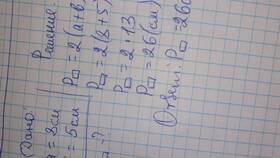 Дано:
= 8см
= 5см
P▭ - ?
Решение:
P▭ = 2(a+b)
P▭ = 2(8+5)
P▭ = 2·13
P▭ = 26(см)
Ответ: P▭ = 26с